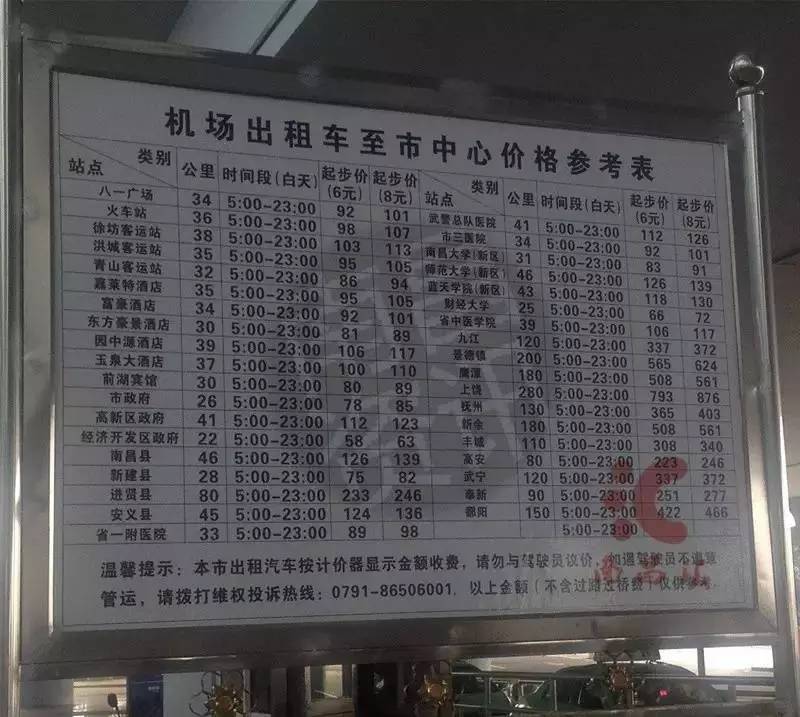 机场出租车至市中心价格参考表
站点 类别 公里 时间段(白天) 起步价(6元) 起步价(8元)
八一广场 34 5:00-23:00 92 101
火车站 36 5:00-23:00 98 107
徐坊客运站 38 5:00-23:00 103 113
洪城客运站 35 5:00-23:00 95 105
青山客运站 32 5:00-23:00 86 94
嘉莱特酒店 35 5:00-23:00 95 105
富豪酒店 34 5:00-23:00 92 101
东方豪景酒店 30 5:00-23:00 81 89
园中源酒店 39 5:00-23:00 106 117
玉泉大酒店 37 5:00-23:00 100 110
前湖宾馆 30 5:00-23:00 80 89
市政府 26 5:00-23:00 78 85
高新区政府 41 5:00-23:00 112 123
经济开发区政府 22 5:00-23:00 58 63
南昌县 46 5:00-23:00 126 139
新建县 28 5:00-23:00 75 82
进贤县 80 5:00-23:00 233 246
安义县 45 5:00-23:00 124 136
省一附医院 33 5:00-23:00 89 98
站点 类别 公里 时间段(白天) 起步价(6元) 起步价(8元)
武警总队医院 41 5:00-23:00 112 126
市三医院 34 5:00-23:00 92 101
南昌大学(新区) 31 5:00-23:00 83 91
师范大学(新区) 46 5:00-23:00 126 139
蓝天学院(新区) 43 5:00-23:00 118 130
财经大学 25 5:00-23:00 66 72
省中医学院 39 5:00-23:00 106 117
九江 120 5:00-23:00 337 372
景德镇 200 5:00-23:00 565 624
鹰潭 180 5:00-23:00 508 561
上饶 280 5:00-23:00 793 876
抚州 130 5:00-23:00 365 403
新余 180 5:00-23:00 508 561
丰城 110 5:00-23:00 308 340
高安 80 5:00-23:00 223 246
武宁 120 5:00-23:00 337 372
奉新 90 5:00-23:00 251 277
鄱阳 150 5:00-23:00 422 466
5:00-23:00
温馨提示：本市出租汽车按计价器显示金额收费，请勿与驾驶员议价，如遇驾驶员不遵章
管运，请拨打维权投诉热线：0791-86506001，以上金额（不含过路过桥费）仅供参考。